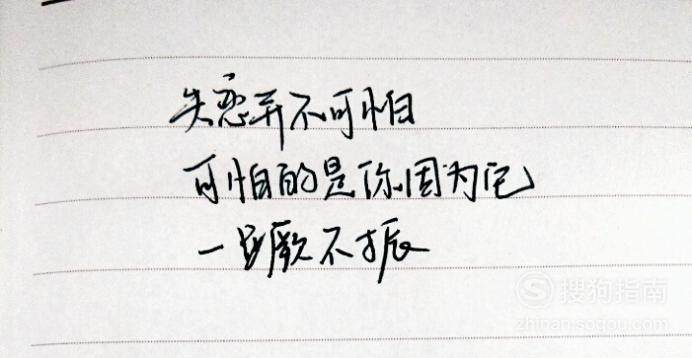 失恋并不可怕
可怕的是你因为它
一蹶不振
S 搜狗指南
zhinan.sogou.com